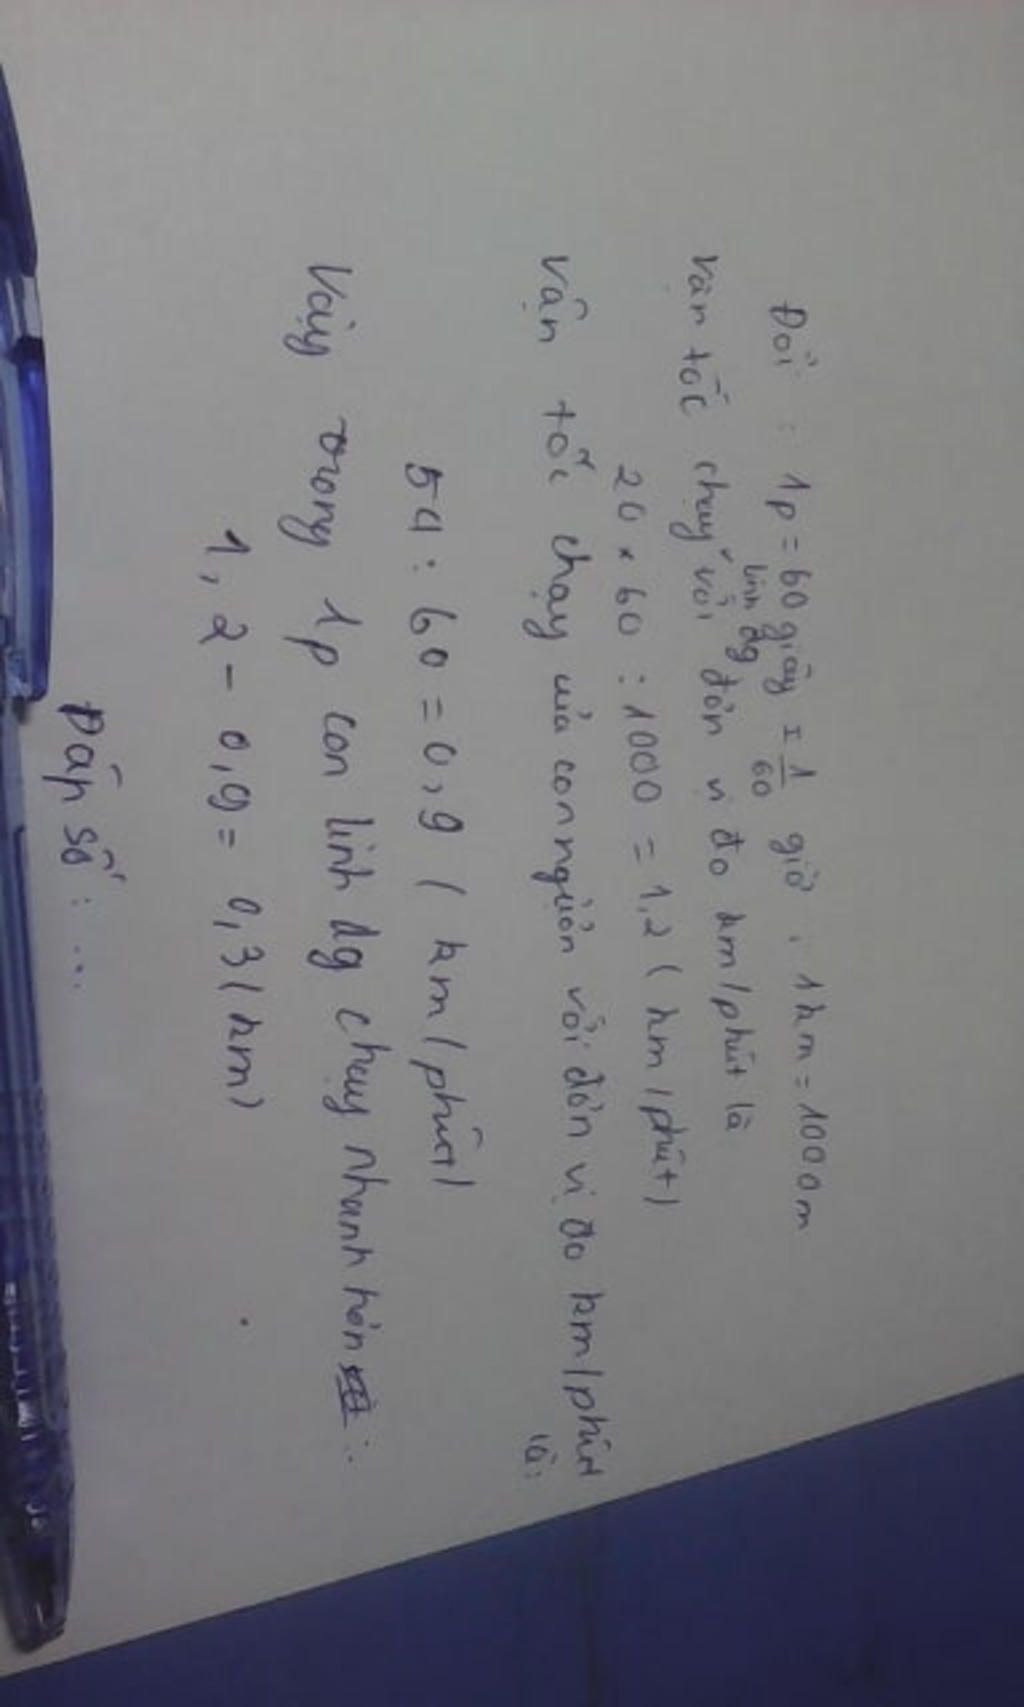 Đổi : 1p = 60 giây = 1/60 giờ , 1km = 1000m
Vận tốc chạy linh dg với đơn vị đo km/phút là
20 × 60 : 1000 = 1,2 ( km/phút)
Vận tốc chạy của con ngựa vằn với đơn vị đo km/phút là:
54 : 60 = 0,9 ( km/phút)
Vậy trong 1p con linh dg chạy nhanh hơn :
1,2 - 0,9 = 0,3 ( km)
Đáp số : ...